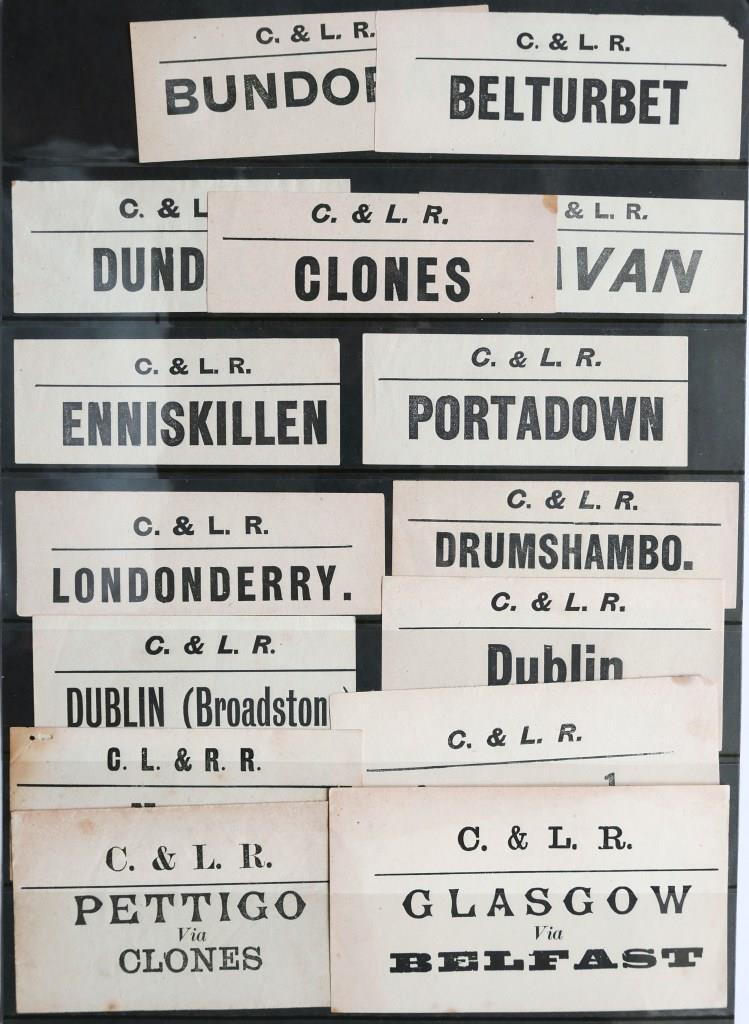 C. & L. R.
BUNDO
C. & L. R.
BELTURBET
C. & L
DUND
C. & L. R.
CLONES
& L. R.
VAN
C. & L. R.
ENNISKILLEN
C. & L. R.
PORTADOWN
C. & L. R.
LONDONDERRY.
C. & L. R.
DRUMSHAMBO.
C. & L. R.
DUBLIN (Broadston
C. & L. R.
Dublin
C. L. & R. R.
C. & L. R.
C. & L. R.
PETTIGO
Via
CLONES
C. & L. R.
GLASGOW
Via
BELFAST